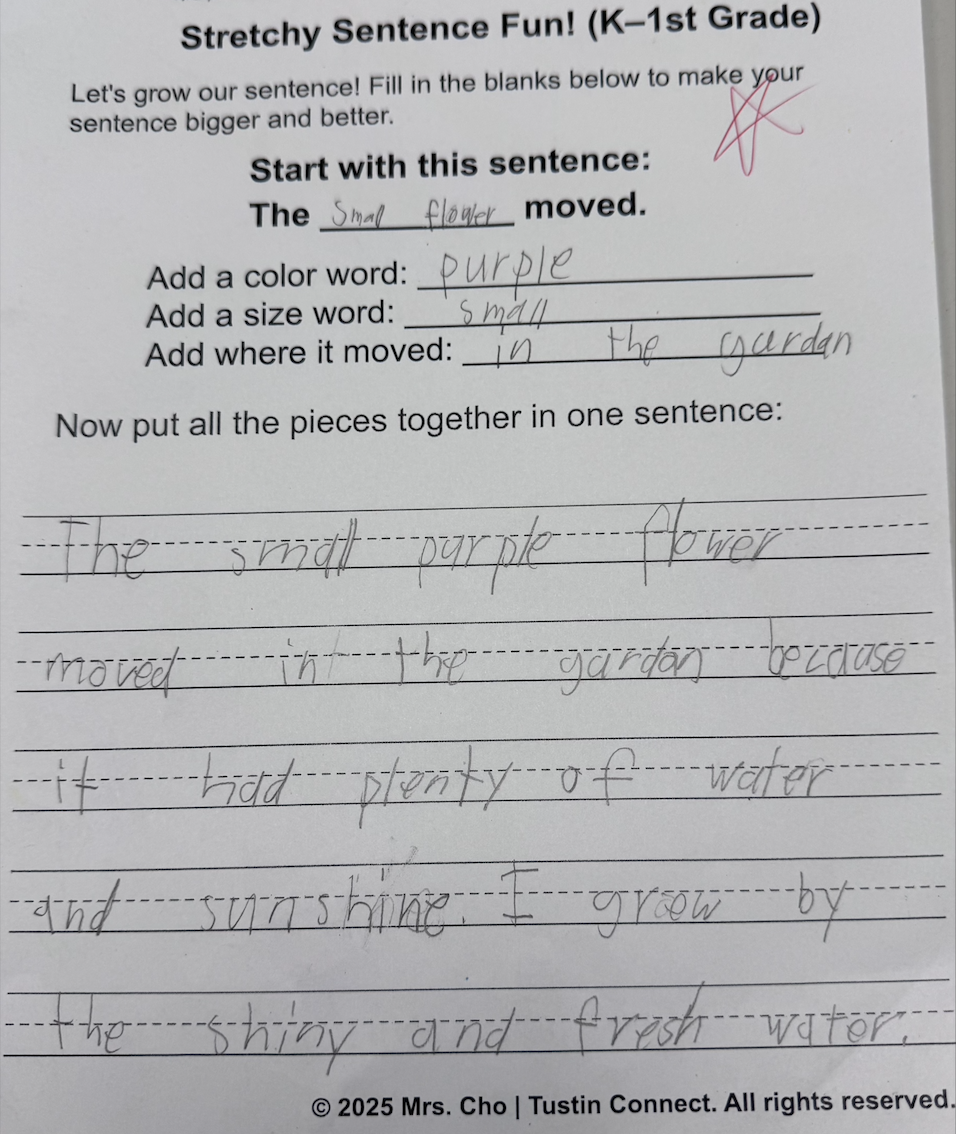 Stretchy Sentence Fun! (K–1st Grade)
Let's grow our sentence! Fill in the blanks below to make your
sentence bigger and better.
Start with this sentence:
The Small flower moved.
Add a color word: purple
Add a size word: small
Add where it moved: in the gardan
Now put all the pieces together in one sentence:
The small purple flower
moved in the gardan because
it had plenty of water
and sunshine. I grow by
the shiny and fresh water.
© 2025 Mrs. Cho | Tustin Connect. All rights reserved.